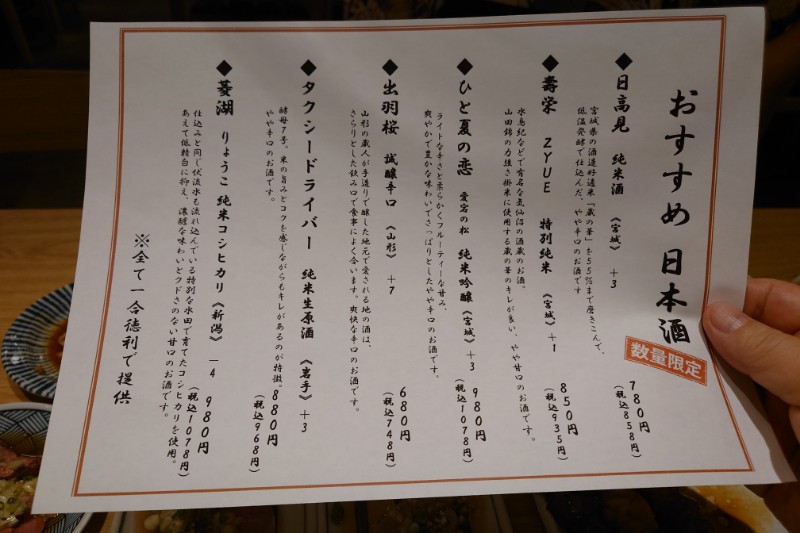 おすすめ 日本酒
数量限定
◆日高見 純米酒 《宮城》 +3
宮城県の酒造好適米「蔵の華」を55%まで磨きこんで、
低温発酵で仕込んだ、やや辛口のお酒です
780円
(税込858円)
◆壽栄 ZYUE 特別純米 《宮城》 +1
水鳥記などで有名な気仙沼の酒蔵のお酒。
山田錦の力強さ掛米に使用する蔵の華のキレが良い、やや甘口のお酒です。
850円
(税込935円)
◆ひと夏の恋 愛宕の松 純米吟醸《宮城》 +3
ライトな辛さと柔らかくフルーティーな甘み、
爽やかで豊かな味わいでさっぱりとしたやや辛口のお酒です。
980円
(税込1078円)
◆出羽桜 誠醸辛口 《山形》 +7
山形の蔵人が手造りで醸した地元で愛される地の酒は、
さらりとした飲み口で食事によく合います。爽快な辛口のお酒です。
680円
(税込748円)
◆タクシードライバー 純米生原酒 《岩手》 +3
酵母7号、米の旨みとコクを感じながらもキレがあるのが特徴。
やや辛口のお酒です。
880円
(税込968円)
◆菱湖 りょうこ 純米コシヒカリ《新潟》 -4
仕込みと同じ伏流水も流れ込んでいる特別な水田で育てたコシヒカリを使用。
あえて低精白に抑え、濃醇な味わいとクドさのない甘口のお酒です。
980円
(税込1078円)
※全て一合徳利で提供